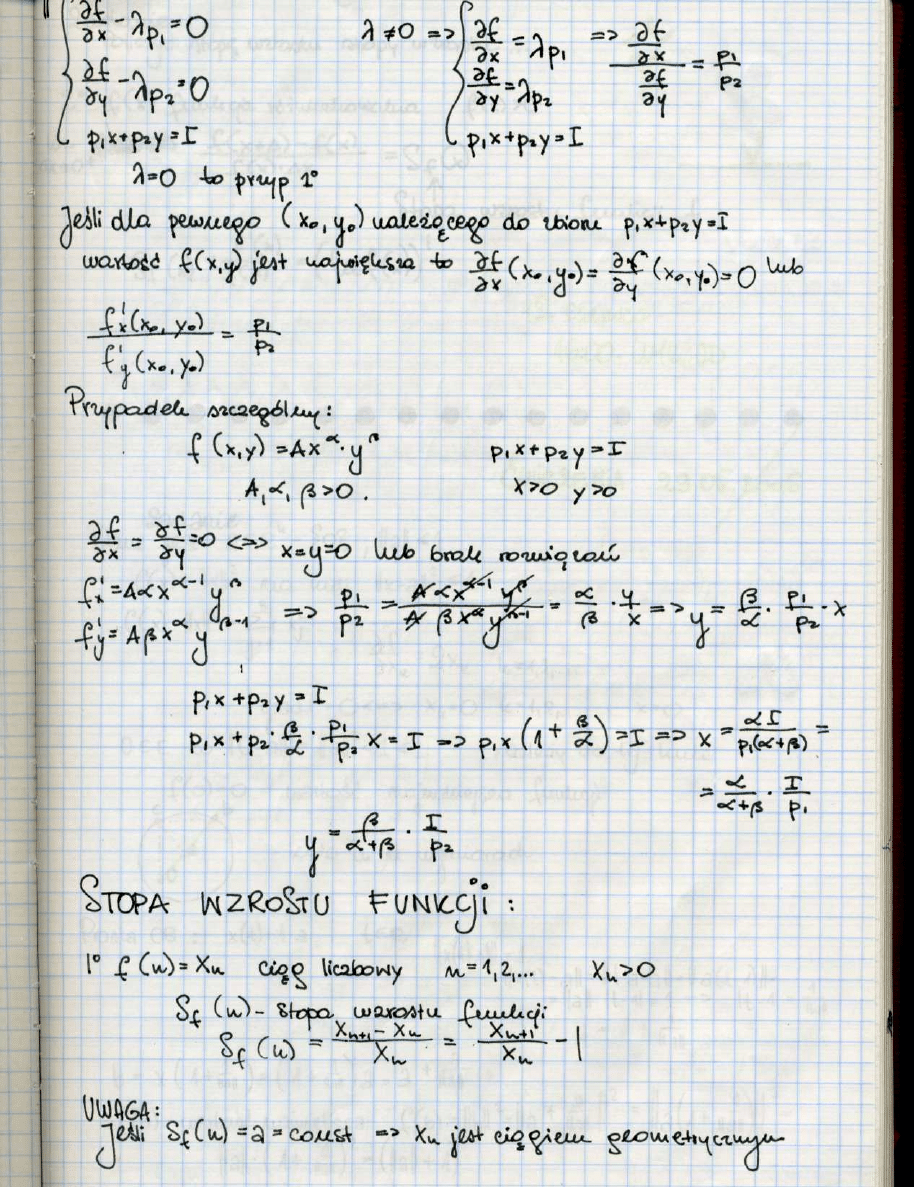 ∂f/∂x - λp₁ = 0    λ ≠ 0 => { ∂f/∂x = λp₁ => (∂f/∂x)/(∂f/∂y) = p₁/p₂
∂f/∂y - λp₂ = 0    ∂f/∂y = λp₂
p₁x + p₂y = I    p₁x + p₂y = I
λ=0 to przyp 1°
Jeśli dla pewnego (x₀, y₀) należącego do zbioru p₁x+p₂y=I
wartość f(x,y) jest największa to ∂f/∂x (x₀, y₀) = ∂f/∂y (x₀, y₀) = 0 lub
f'x(x₀, y₀) / f'y(x₀, y₀) = p₁/p₂
Przypadek szczególny:
f(x,y) = Ax^α · y^β    p₁x + p₂y = I
A, α, β > 0.    x>0 y>0
∂f/∂x = ∂f/∂y = 0 <=> x=y=0 lub brak rozwiązań
f'x = Aαx^(α-1) y^β
f'y = Aβx^α y^(β-1) => p₁/p₂ = (Aαx^(α-1) y^β)/(Aβx^α y^(β-1)) = α/β · y/x => y = β/α · p₁/p₂ · x
p₁x + p₂y = I
p₁x + p₂ · β/α · p₁/p₂ x = I => p₁x(1 + β/α) = I => x = αI/(p₁(α+β)) =
= α/(α+β) · I/p₁
y = β/(α+β) · I/p₂
STOPA WZROSTU FUNKCJI:
1° f(n) = xn ciąg liczbowy n=1,2,... xn>0
Sf(n) - stopa wzrostu funkcji
Sf(n) = (xn+1 - xn)/xn = xn+1/xn - 1
UWAGA:
Jeśli Sf(n) = a = const => xn jest ciągiem geometrycznym